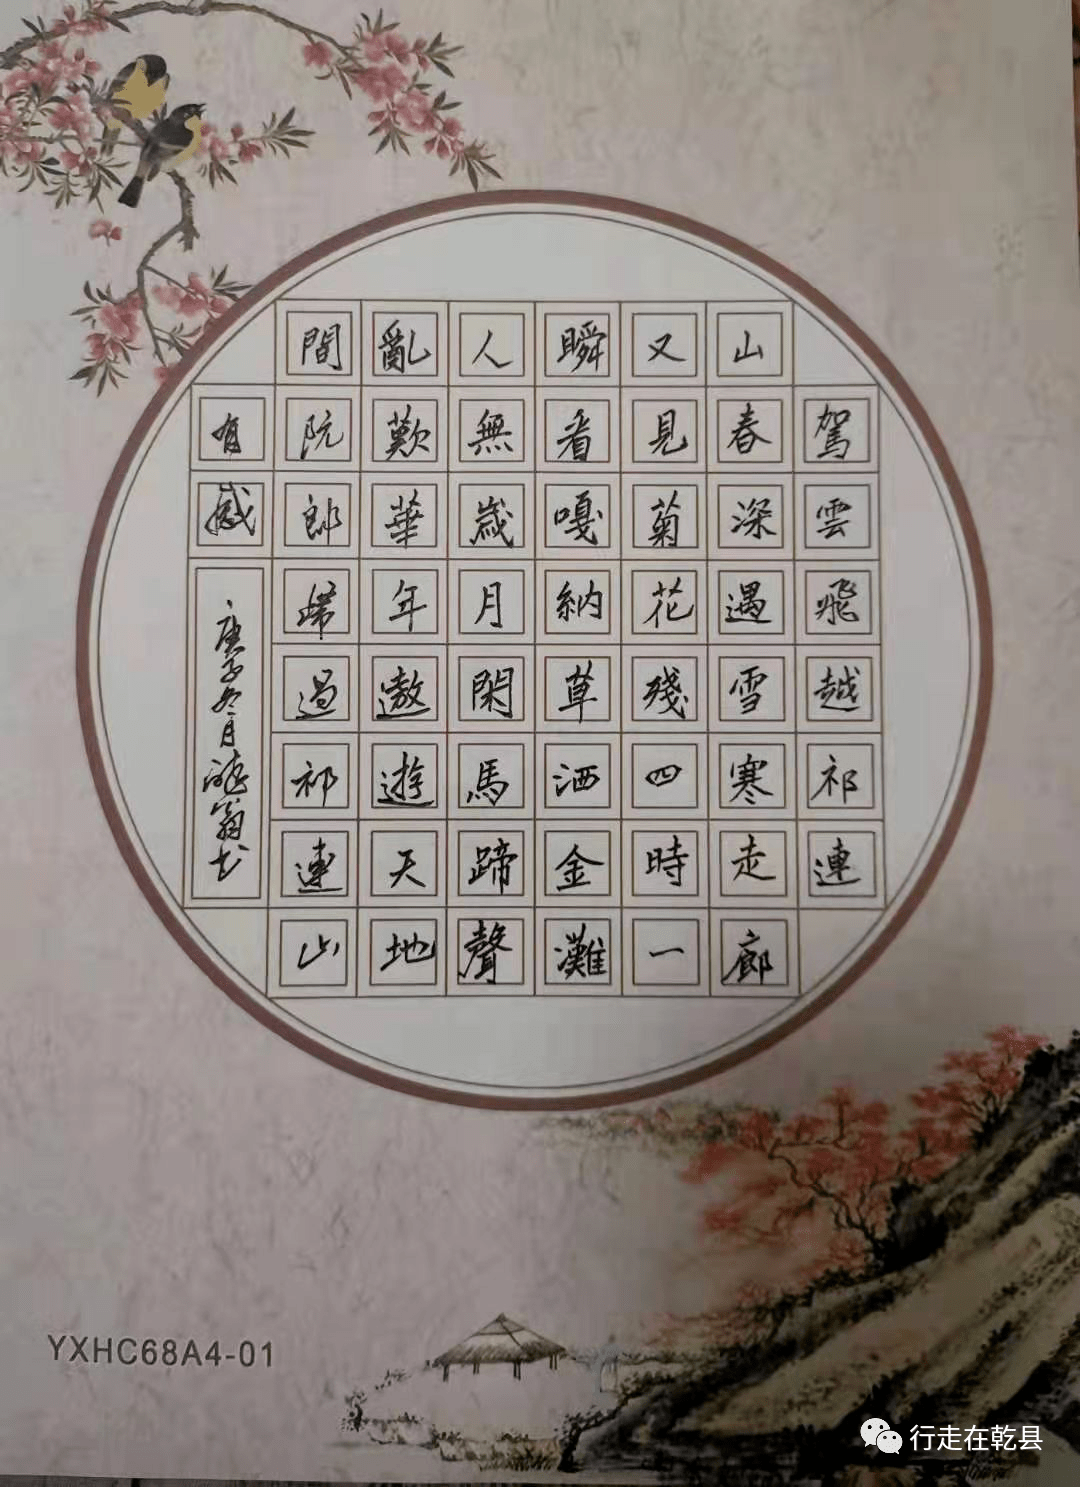 駕雲飛越祁連
山春深遇雪寒走廊
又見菊花殘四時一
瞬看嘎納草洒金灘
人無歲月閑馬蹄聲
亂歎華年遨遊天地
間阮郎歸過祁連山
有感
庚子冬月聽翁书
YXHC68A4-01
行走在乾县